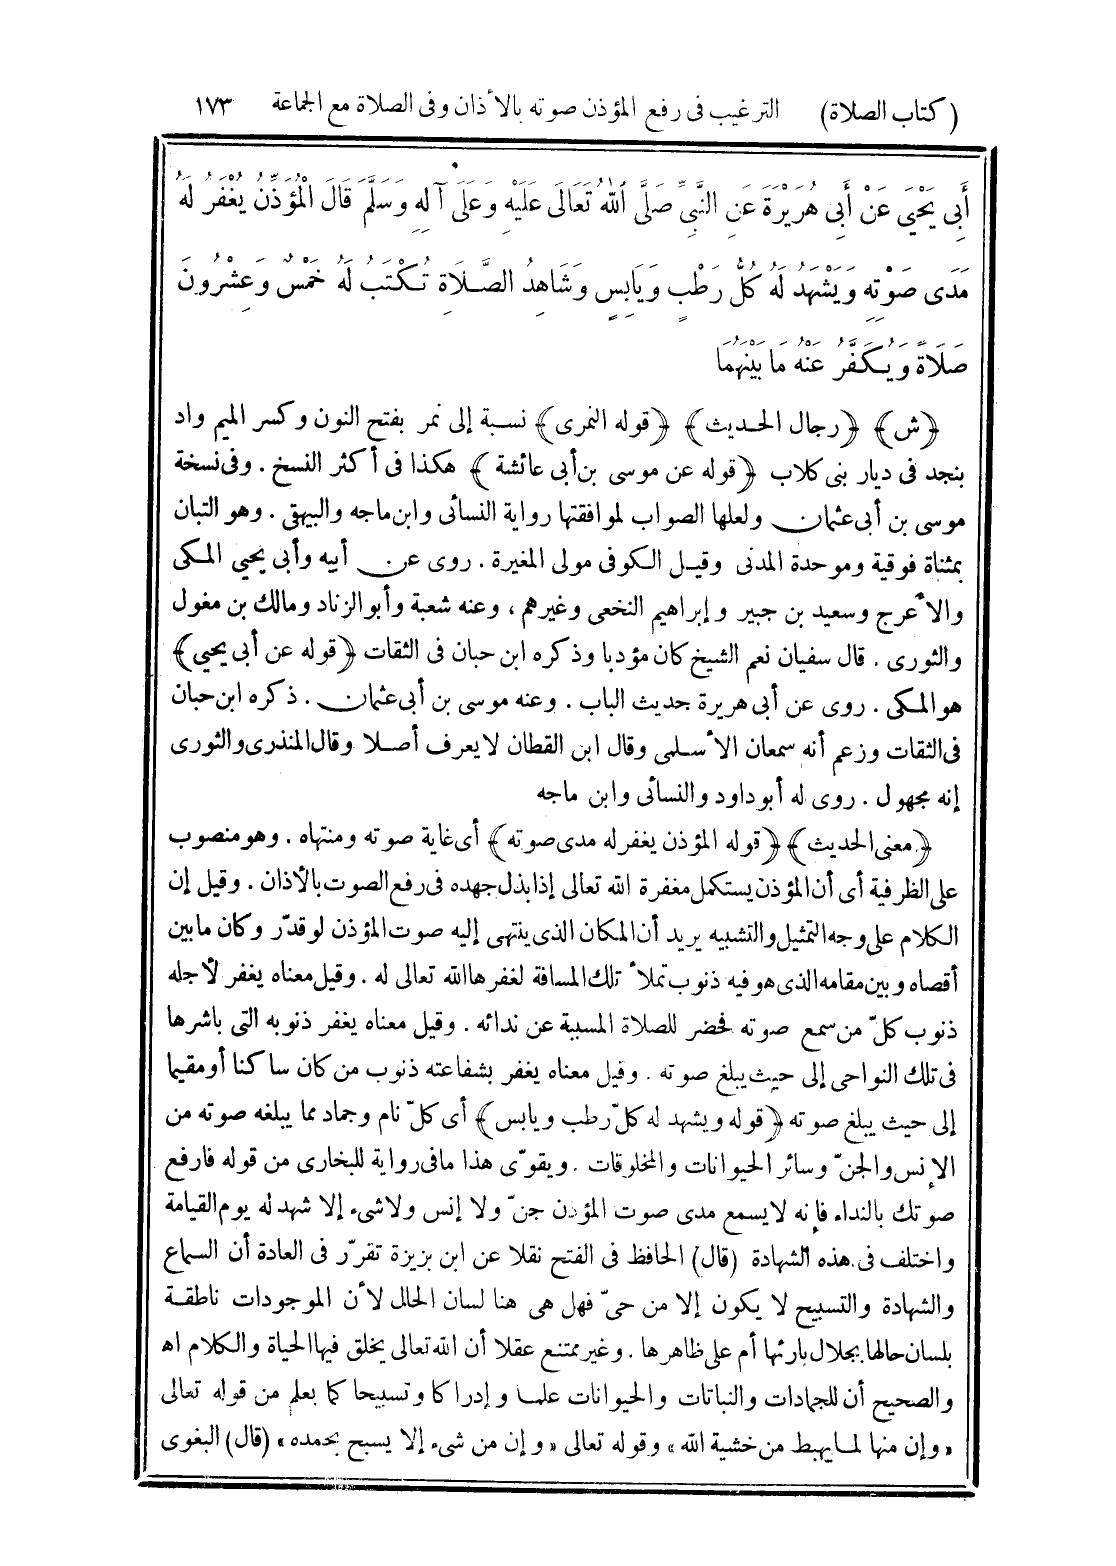 (كتاب الصلاة) الترغيب فى رفع المؤذن صوته بالأذان وفى الصلاة مع الجماعة ١٧٣
أَبِى يَحْيَى عَنْ أَبِى هُرَيْرَةَ عَنِ النَّبِىِّ صَلَّى ٱللهُ تَعَالَى عَلَيْهِ وَعَلَى آلِهِ وَسَلَّمَ قَالَ الْمُؤَذِّنُ يُغْفَرُ لَهُ
مَدَى صَوْتِهِ وَيَشْهَدُ لَهُ كُلُّ رَطْبٍ وَيَابِسٍ وَشَاهِدُ الصَّلَاةِ تُكْتَبُ لَهُ خَمْسٌ وَعِشْرُونَ
صَلَاةً وَيُكَفَّرُ عَنْهُ مَا بَيْنَهُمَا
﴿ش﴾ ﴿رجال الحديث﴾ ﴿قوله النمرى﴾ نسبة إلى نمر بفتح النون وكسر الميم واد
بنجد فى ديار بنى كلاب ﴿قوله عن موسى بن أبى عائشة﴾ هكذا فى أكثر النسخ . وفى نسخة
موسى بن أبى عثمان ولعلها الصواب لموافقتها رواية النسائى وابن ماجه والبيهقى . وهو التبان
بمثناة فوقية وموحدة المدنى وقيل الكوفى مولى المغيرة . روى عن أبيه وأبى يحيى المكى
والأعرج وسعيد بن جبير وإبراهيم النخعى وغيرهم ، وعنه شعبة وأبو الزناد ومالك بن مغول
والثورى . قال سفيان نعم الشيخ كان مؤدبا وذكره ابن حبان فى الثقات ﴿قوله عن أبى يحيى﴾
هو المكى . روى عن أبى هريرة حديث الباب . وعنه موسى بن أبى عثمان . ذكره ابن حبان
فى الثقات وزعم أنه سمعان الأسلمى وقال ابن القطان لا يعرف أصلا وقال المنذرى والثورى
إنه مجهول . روى له أبو داود والنسائى وابن ماجه
﴿معنى الحديث﴾ ﴿قوله المؤذن يغفر له مدى صوته﴾ أى غاية صوته ومنتهاه . وهو منصوب
على الظرفية أى أن المؤذن يستكمل مغفرة الله تعالى إذا بذل جهده فى رفع الصوت بالأذان . وقيل إن
الكلام على وجه التمثيل والتشبيه يريد أن المكان الذى ينتهى إليه صوت المؤذن لو قدّر وكان ما بين
أقصاه وبين مقامه الذى هو فيه ذنوب تملأ تلك المسافة لغفرها الله تعالى له . وقيل معناه يغفر لأجله
ذنوب كلّ من سمع صوته فحضر للصلاة المسببة عن ندائه . وقيل معناه يغفر ذنوبه التى باشرها
فى تلك النواحى إلى حيث يبلغ صوته . وقيل معناه يغفر بشفاعته ذنوب من كان ساكنا أو مقيما
إلى حيث يبلغ صوته ﴿قوله ويشهد له كلّ رطب ويابس﴾ أى كلّ نام وجماد مما يبلغه صوته من
الإنس والجنّ وسائر الحيوانات والمخلوقات . ويقوّى هذا ما فى رواية للبخارى من قوله فارفع
صوتك بالنداء فإنه لا يسمع مدى صوت المؤذن جنّ ولا إنس ولا شىء إلا شهد له يوم القيامة
واختلف فى هذه الشهادة (قال) الحافظ فى الفتح نقلا عن ابن بزيزة تقرّر فى العادة أن السماع
والشهادة والتسبيح لا يكون إلا من حىّ فهل هى هنا لسان الحال لأن الموجودات ناطقة
بلسان حالها بجلال بارئها أم على ظاهرها . وغير ممتنع عقلا أن الله تعالى يخلق فيها الحياة والكلام اه
والصحيح أن للجمادات والنباتات والحيوانات علما وإدراكا وتسبيحا كما يعلم من قوله تعالى
«وإن منها لما يهبط من خشية الله» وقوله تعالى «وإن من شىء إلا يسبح بحمده» (قال) البغوى